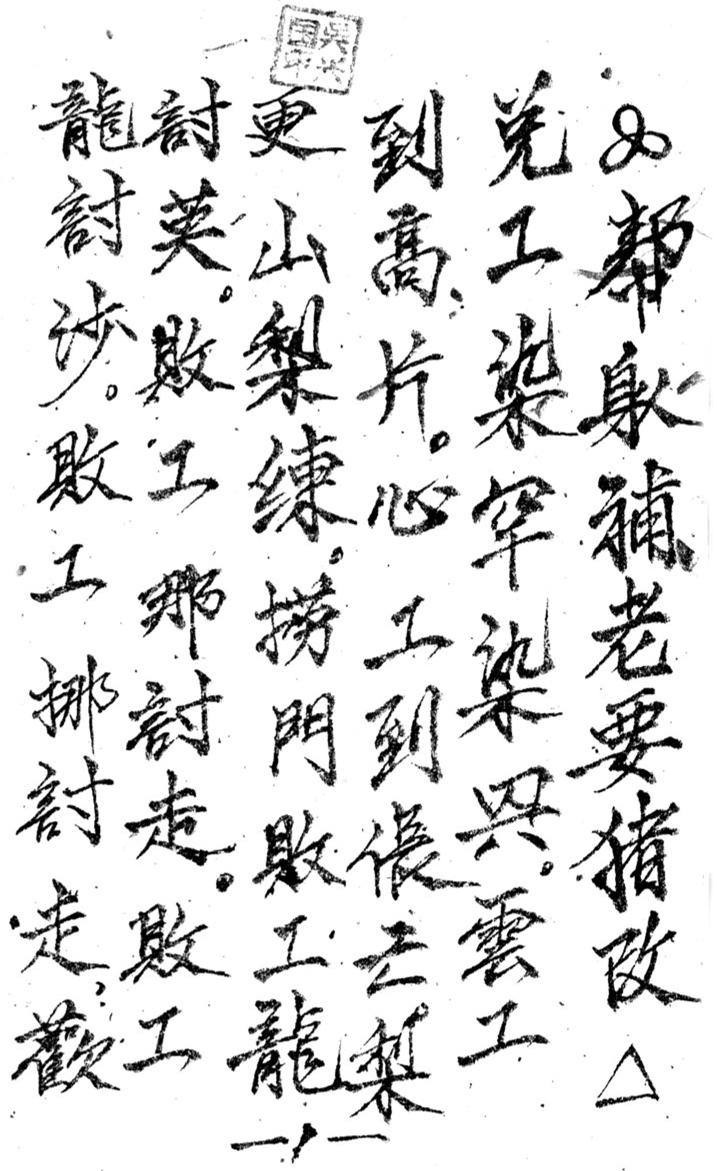 幇躬補老要猪改△
兊工染罕染哭。雲工
到高片。心工到偎之梨
更山梨練。撈門敗工龍
討英。敗工那討走。敗工
龍討沙。敗工挪討走，歡
一